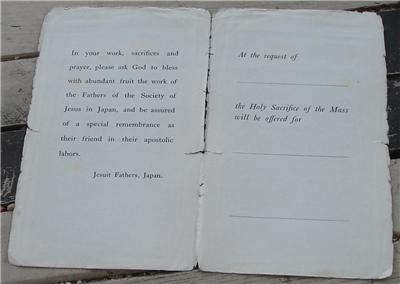 In your work, sacrifices and
prayer, please ask God to bless
with abundant fruit the work of
the Fathers of the Society of
Jesus in Japan, and be assured
of a special remembrance as
their friend in their apostolic
labors.
Jesuit Fathers, Japan.
At the request of
the Holy Sacrifice of the Mass
will be offered for